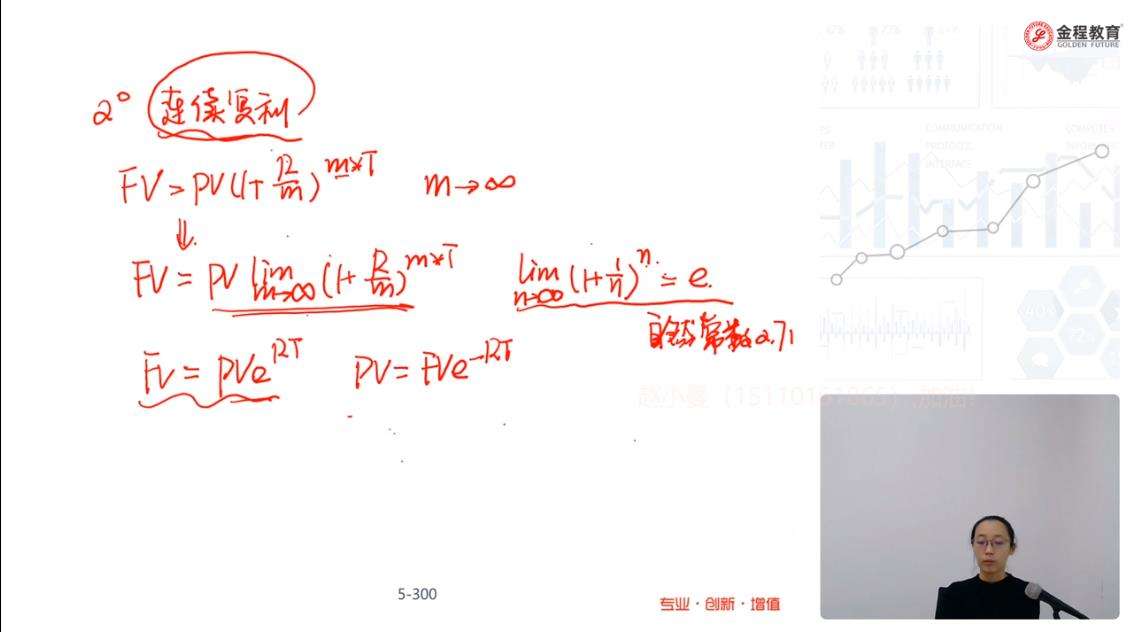 金程教育
GOLDEN FUTURE
2° 连续复利
FV = PV(1+R/m)^m*T m→∞
⇓
FV = PV lim m→∞ (1+R/m)^m*T lim n→∞ (1+1/n)^n = e.
自然常数2.71
FV = PVe^RT PV = FVe^-RT
COMMUNICATION
PROTOCOL
INTERFACE
5-300
专业·创新·增值